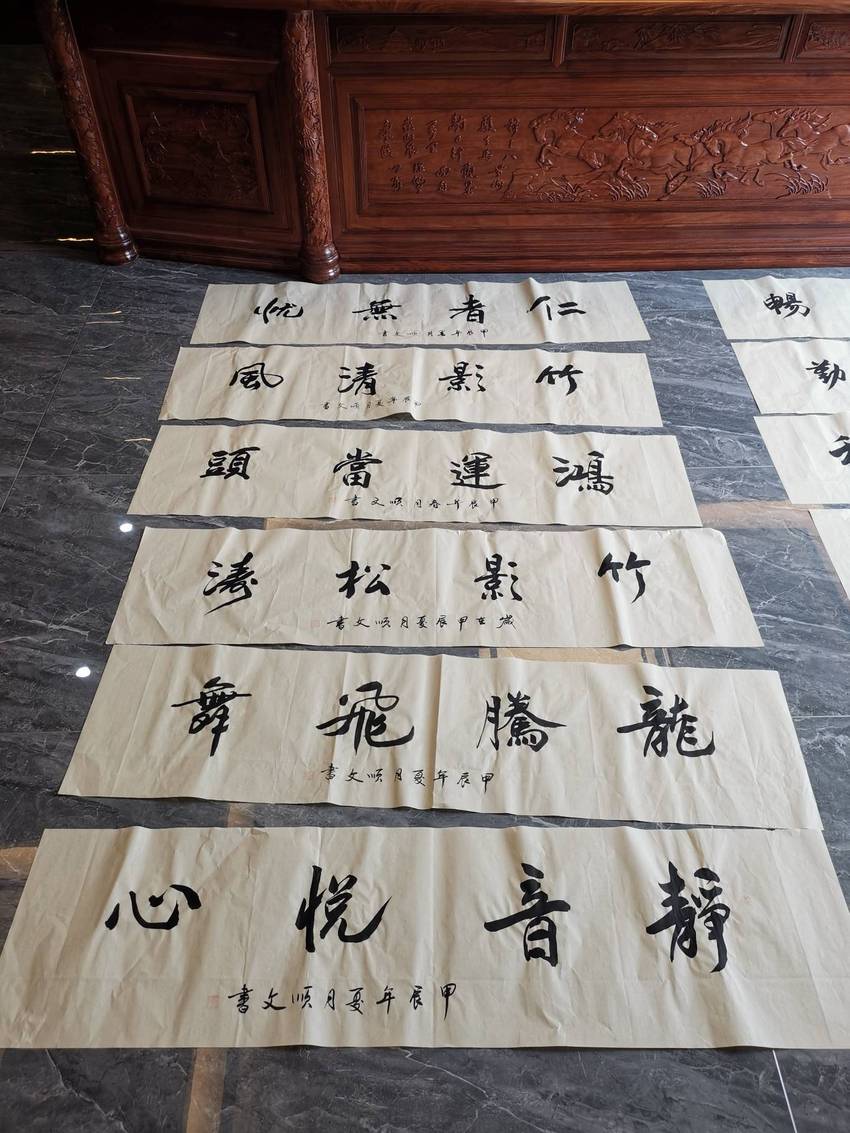 仁者無忧
甲辰年夏月順文書
竹影清風
甲辰年夏月順文書
鴻運當頭
甲辰年春月順文書
竹影松濤
歲在甲辰夏月順文書
龍騰飛舞
甲辰年夏月順文書
靜音悅心
甲辰年夏月順文書
暢
勤